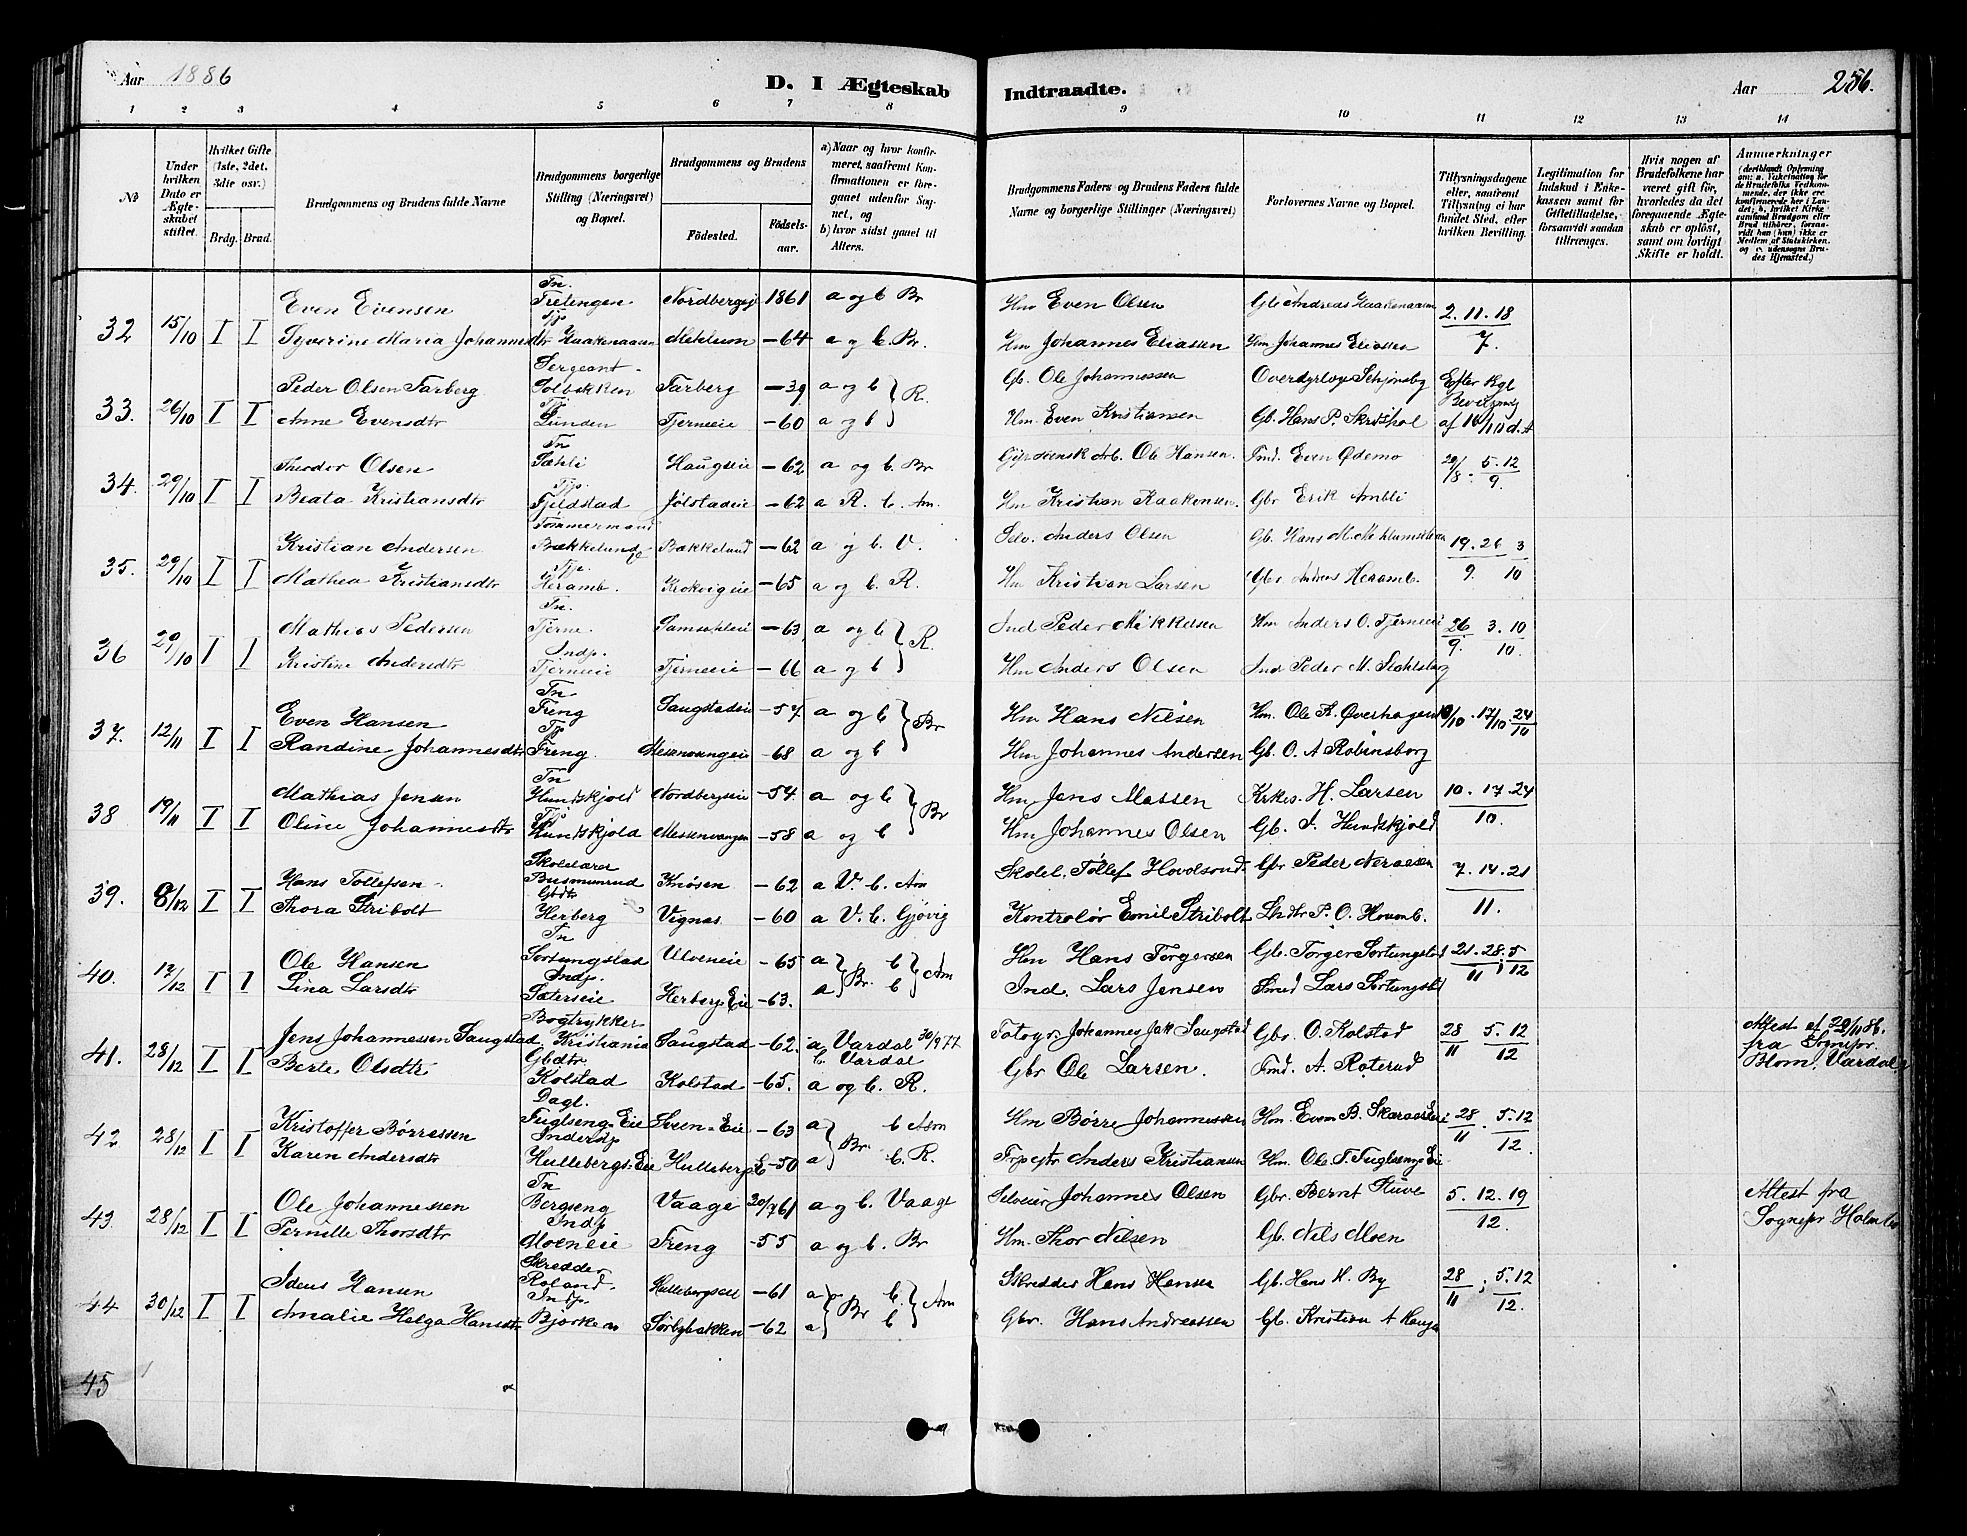 Aar 1886
D. I Ægteskab Indtraadte.
Aar 256.
1 2 3 4 5 6 7 8 9 10 11 12 13 14
No
Under hvilken Dato er Ægteskabet stiftet.
Hvilket Gifte (1ste, 2det, 3die osv.)
Brdg. Brud.
Brudgommens og Brudens fulde Navne
Brudgommens borgerlige Stilling (Næringsvei) og Bopæl.
Brudgommens og Brudens
Fødested.
Fødselsaar.
a) Naar og hvor konfirmeret, saafremt Konfirmationen er foregaaet udenfor Sognet, og
b) hvor sidst gaaet til Alters.
Brudgommens Faders og Brudens Faders fulde Navne og borgerlige Stillinger (Næringsvei)
Forlovernes Navne og Bopæl.
Tillysningsdagene eller, saafremt Tillysning ei har fundet Sted, efter hvilken Bevilling.
Legitimation for Indskud i Enkekassen samt for Giftetilladelse, forsaavidt saadan tiltrænges.
Hvis nogen af Brudefolkene har været gift før, hvorledes da det foregaaende Ægteskab er opløst, samt om lovligt Skifte er holdt.
Anmerkninger
(deriblandt Oplysning om: a. Vakcination for de Brudefolks Vedkommende, der ikke ere konfirmerede her i Landet; b. hvilket Kirkesamfund Brudgom eller Brud tilhører, forsaavidt han (hun) ikke er Medlem af Statskirken, og c. udensogns Brudes Hjemsted.)
Tn.
Even Evensen Frelengen Nordbergeje 1861 a og b Br Hm Even Olsen Gb. Andreas Haakenaasen 2. 11. 18
32 15/10 I I Tj.
Syverine Maria Johannesdtr Haakenaasen Mehlum -64 a og b. Br. Hm Johannes Eliassen Hm Johannes Eliassen 7.
Sergeant
Peder Olsen Farberg Solbakken Farberg -39 a og b } R. Gb. Ole Johannessen Efter Kgl
33. 26/10 I I Tj.
Anne Evensdtr Lunden Tjerneeie -60 a og b Hm. Even Kristiansen Gb. Hans P. Skridshol af 16/10 d.A
Tn
Theodor Olsen Sæhli Haugseie -62 a og b. Br Ole Hansen. Fmd. Even Ødemo 29/8. 5. 12
34. 29/10 I I Tj.
Beata Kristiansdtr Fjeldstad Jølstadeie -62 a R. b. Am. Hm Kristian Haakensen. Gbr Erik Ambli 9.
Tømmermand
Kristian Andersen Bækkelund Bækkelund -62 a og b. V. Selv. Anders Olsen Gb. Hans M. 19. 26 3
35. 29/10 I I Tj.
Mathea Kristiansdtr Heramb. Krokvigeie -65 a og b. R. Hm Kristian Larsen Gbr Andreas Heramb. 9. 10
Tn.
Mathias Pedersen Tjerne. -63 a og b } R. Ind Peder Mikkelsen Hm Anders O. Tjerneeie 26 3. 10
36 29/10 I I Indp.
Kristine Andersdtr Tjerneeie Tjerneeie -66 a og b Hm Anders Olsen Ind Peder M. 9. 10.
Tn
Even Hansen Freng Saugstadeie -57 a og b } Br Hm Hans Nilsen Hm. Ole A. Øverhagen 10/10. 17/10. 24/10
37. 12/11 I I Tj
Randine Johannesdtr Freng. Messenvangeie -68 a og b Hm Johannes Andersen Gb. O. A Robinsborg
Tn
Mathias Jensen Hundskjold Nordbergeie -54. a og b } Br Hm Jens Matsen Krkes. H. Larsen 10. 17. 24
38 19/11 I I Tj.
Oline Johannesdtr Hundskjold Messenvangen -58 a og b Hm Johannes Olsen Gb. J. Hundskjold 10.
Skolelærer
Hans Tollefsen Busmunrud Knøsen -62 a V. b. Am Skolel. Tollef Hovdsrud Gbr Peder Neraasen 7. 14. 21
39. 8/12 I I Gbdtr
Thora Stribolt Herberg Vignæs -60 a V. b. Gjøvig Kontrolør Emil Stribolt P. O. Homb. 11.
Tn
Ole Hansen Sortungstad Ulveneie -65 a } Br. b } Am Hm Hans Torgersen Gb. Torger Sortungstad 21. 28. 5
40. 17/12 I I Indp.
Lina Larsdtr Sæterseie Herbergs Eie -63. a b Ind. Lars Jensen Smed Lars Sortungstad 11 12
Bogtrykker
Jens Johannessen Saugstad, Kristiania Saugstad -62. a Vardal 30/9 77 b. Vardal Fotogr. Johannes Jak Saugstad Gbr. O. Kolstad 28 5. 12 Attest af 29/11 86.
41. 28/12 I I Gbdtr fra Sognepr.
Berte Olsdtr Kolstad Kolstad -65. a og b. R. Gbr Ole Larsen. Fmd. A. Roterud 11 12 Blom, Vardal
Dagl.
Kristoffer Børresen Fuglseng Eie Sveen-Eie -63 a } Br. b Am Hm Børre Johannessen Hm. Even B. 28 5. 12
42 28/12 I I Indersdp
Karen Andersdtr Hullebergs Eie Hullebergs E -50 a b. R. Anders Kristiansen Hm. Ole T. Fuglseng Eie 11 12.
Tn
Ole Johannessen Bergseng Vaage 20/7 61 a og b. Vaage Selveier Johannes Olsen Gbr. Bernt Stuve 5. 12. 19 Attest fra
43. 28/12 I I Indp
Pernille Thorsdtr Moeneie Freng -55 a og b. Br Hm. Thor Nilsen Gb. Nils Moen 12. Sognepr Holmbo
Skredder
Hansen Roland. Hullebergseie -61 a } Br b. } Am Skredder Hans Hansen Gb. Hans H. By 28 ; 5. 12
44 30/12 I I Indp.
Amalie Helga Hansdtr Bjerke Sørlybakken -62 a b Gbr. Hans Andreassen Gb. Kristian A Haugen 11 12.
45